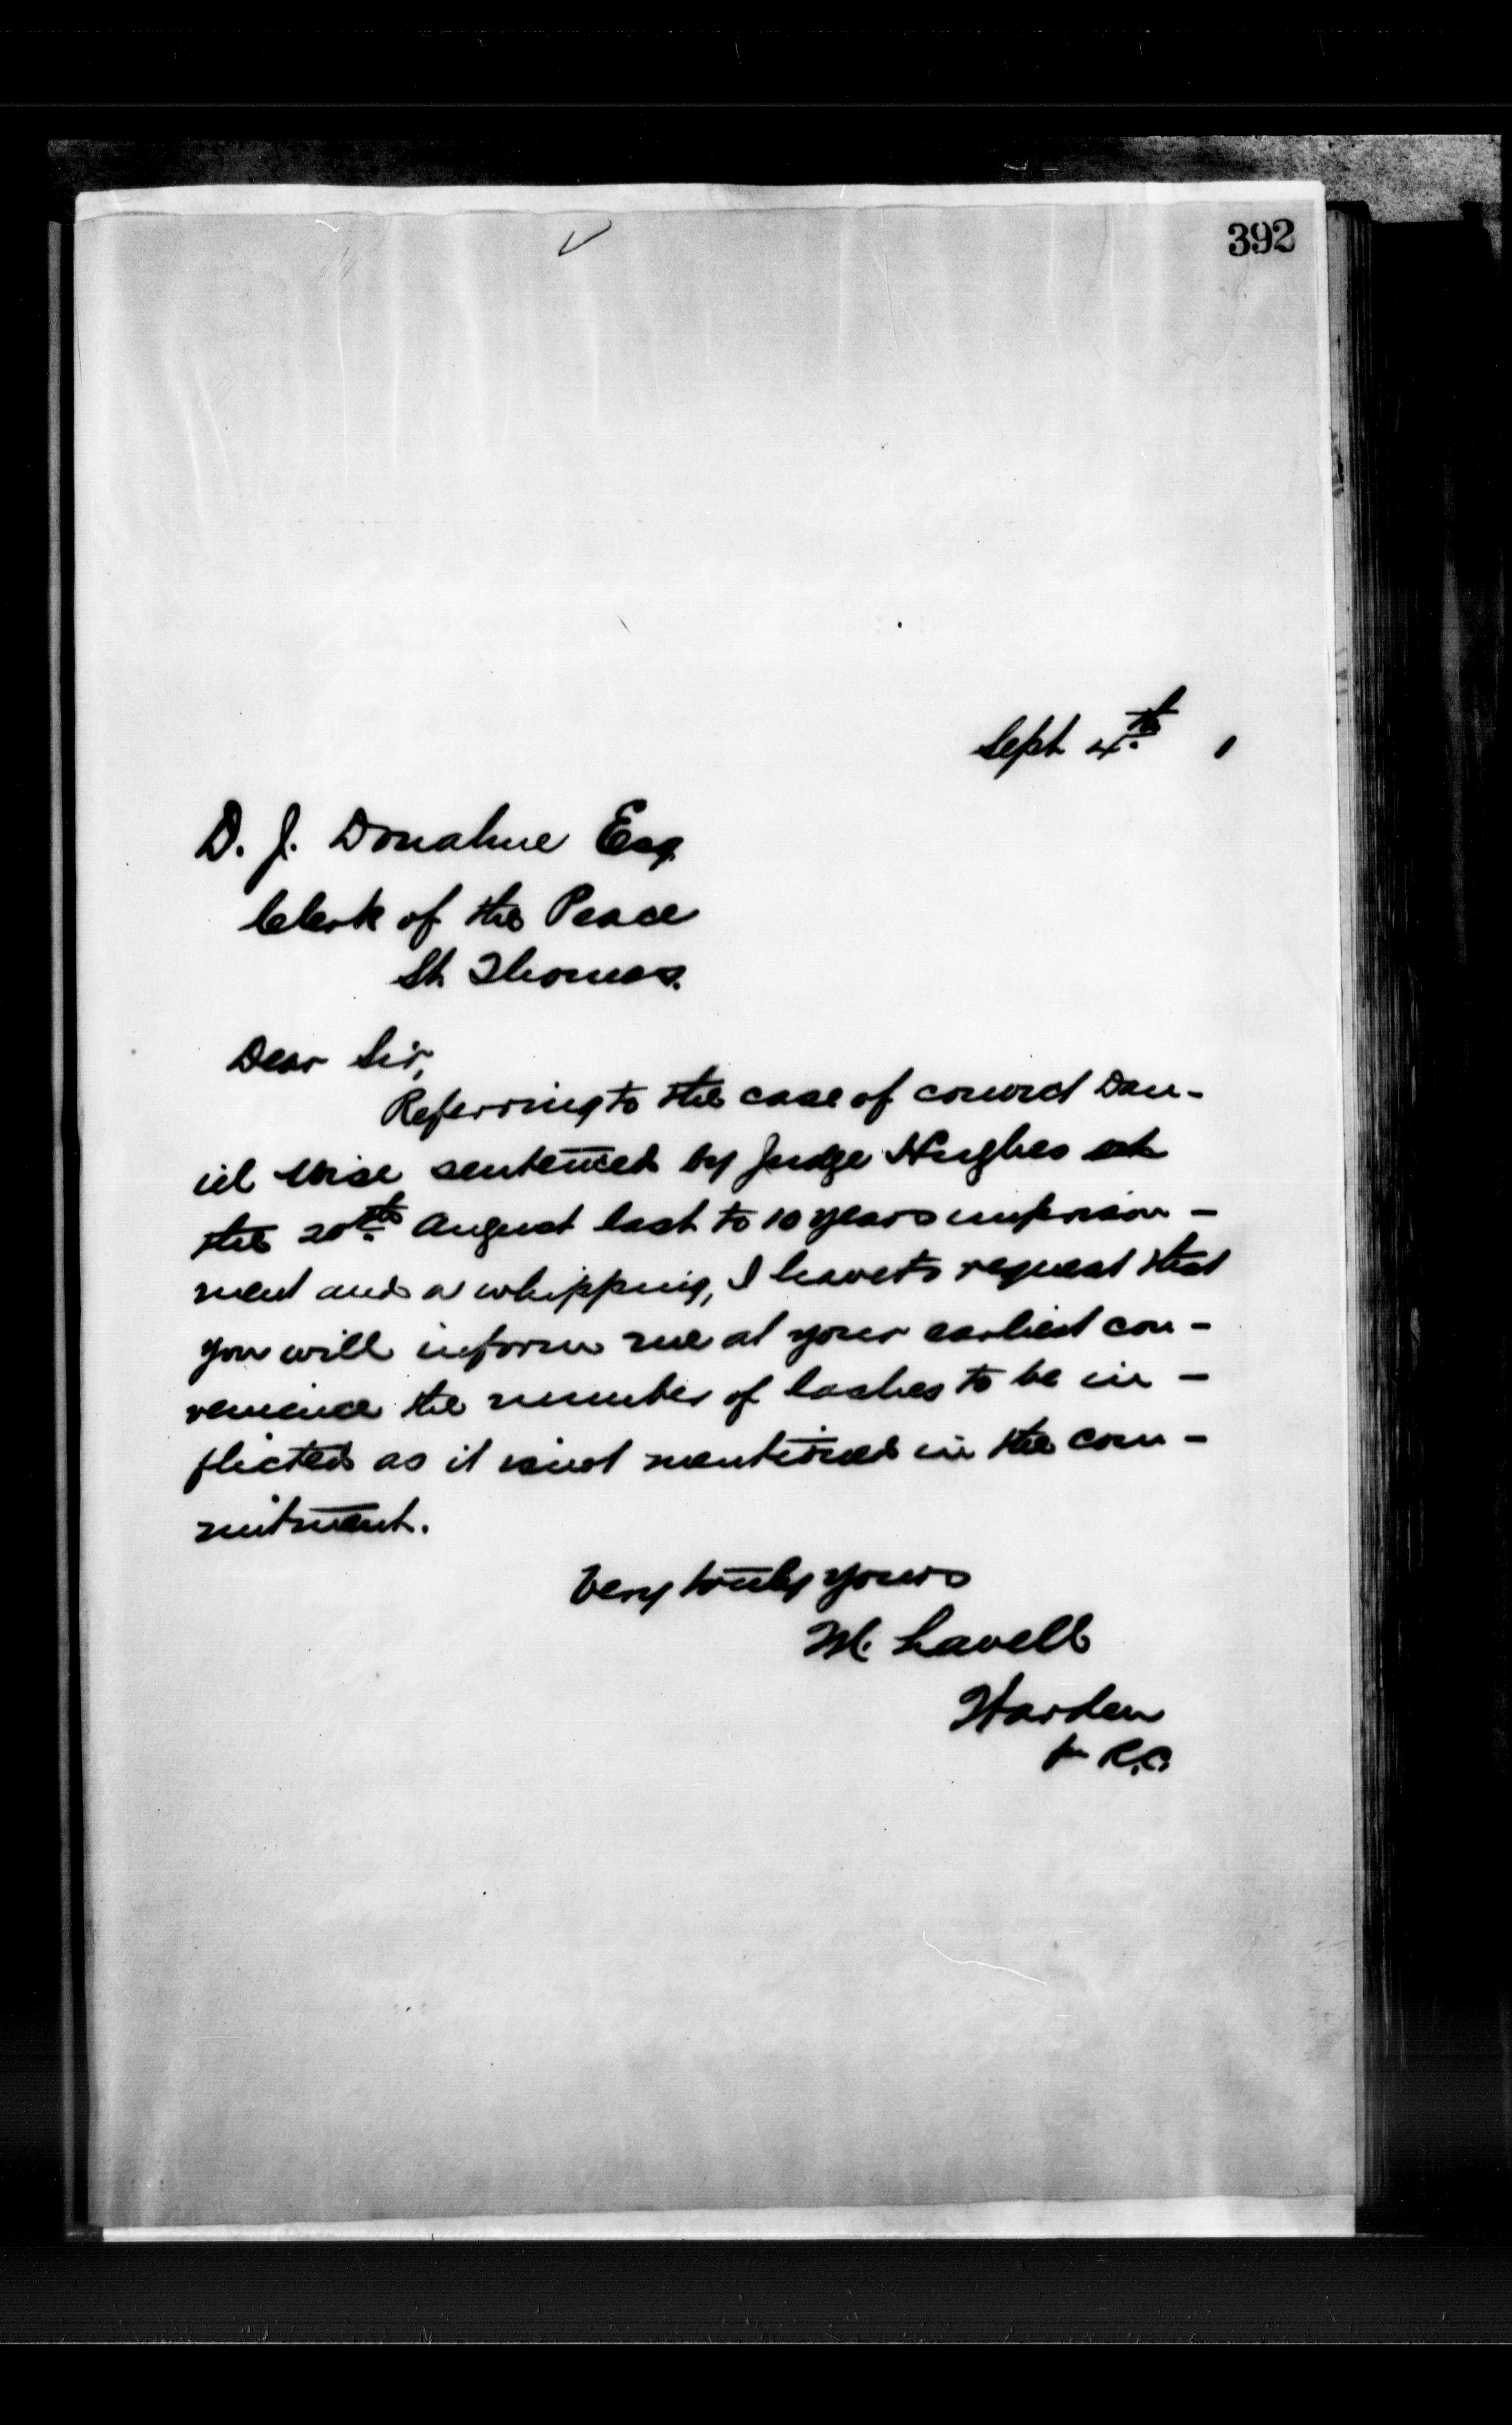 392
Sept 4th 1
D. J. Donahue Esq.
Clerk of the Peace
St. Thomas.
Dear Sir,
Referring to the case of convict Dan-
iel Wise sentenced by Judge Hughes
the 20th August last to 10 years imprison-
ment and a whipping, I have to request that
you will inform me at your earliest con-
venience the number of lashes to be in-
flicted as it is not mentioned in the com-
mitment.
Very truly yours
M. Lavell
Warden
R.C.